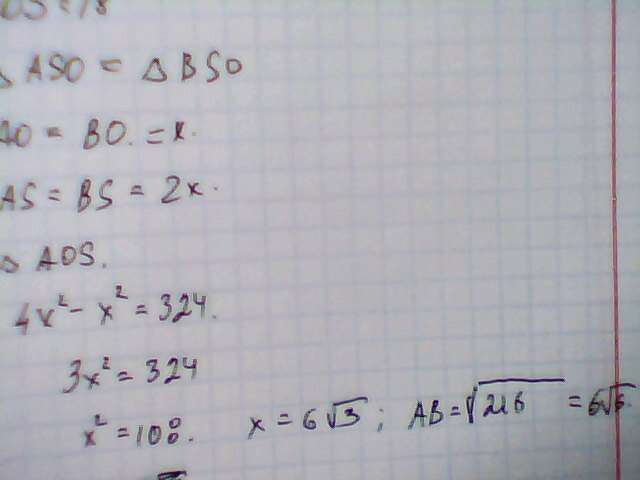 OS = 18
△ ASO = △ BSO
AO = BO. = x.
AS = BS = 2x.
△ AOS.
4x² - x² = 324.
3x² = 324
x² = 108. x = 6√3; AB = √216 = 6√6.